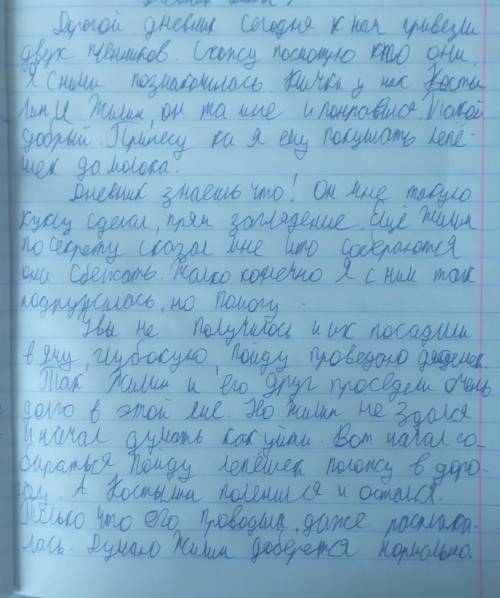 Дорогой дневник сегодня к нам привезли
двух пленников. Схожу посмотрю кто они.
Я с ними познакомилась. Клички у них Косты
лин И Жилин, он та мне и понравился. Такой
добрый. Принесу ка я ему покушать лепё-
шек да молока.
Дневник знаешь что! Он мне такую
куклу сделал, прям загляденье. Ещё Жилин
по секрету сказал мне что собераются
они сбежать. Жалко конечно я с ним так
подружилась, но помогу.
Увы не получилось и их посадили
в яму, глубокую, пойду проведаю
Так Жилин и его друг проседели очень
долго в этой яме. Но Жилин не здался
и начал думать как уйти. Вот начал со-
бираться пойду лепёшек положу в доро-
гу. А Костылин поленился и остался.
Только что его проводила, даже распла-
лась. Думаю Жилин доберется нормально.